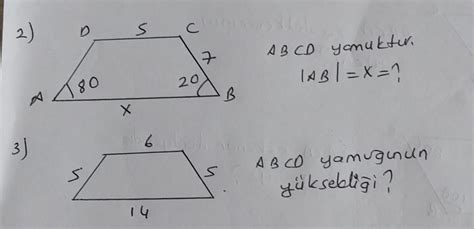 2)
D 5 C
7
A 80 20 B
x
ABCD yamuktur.
|AB| = x = ?
3)
6
5 5
14
ABCD yamuğunun
yüksekliği?